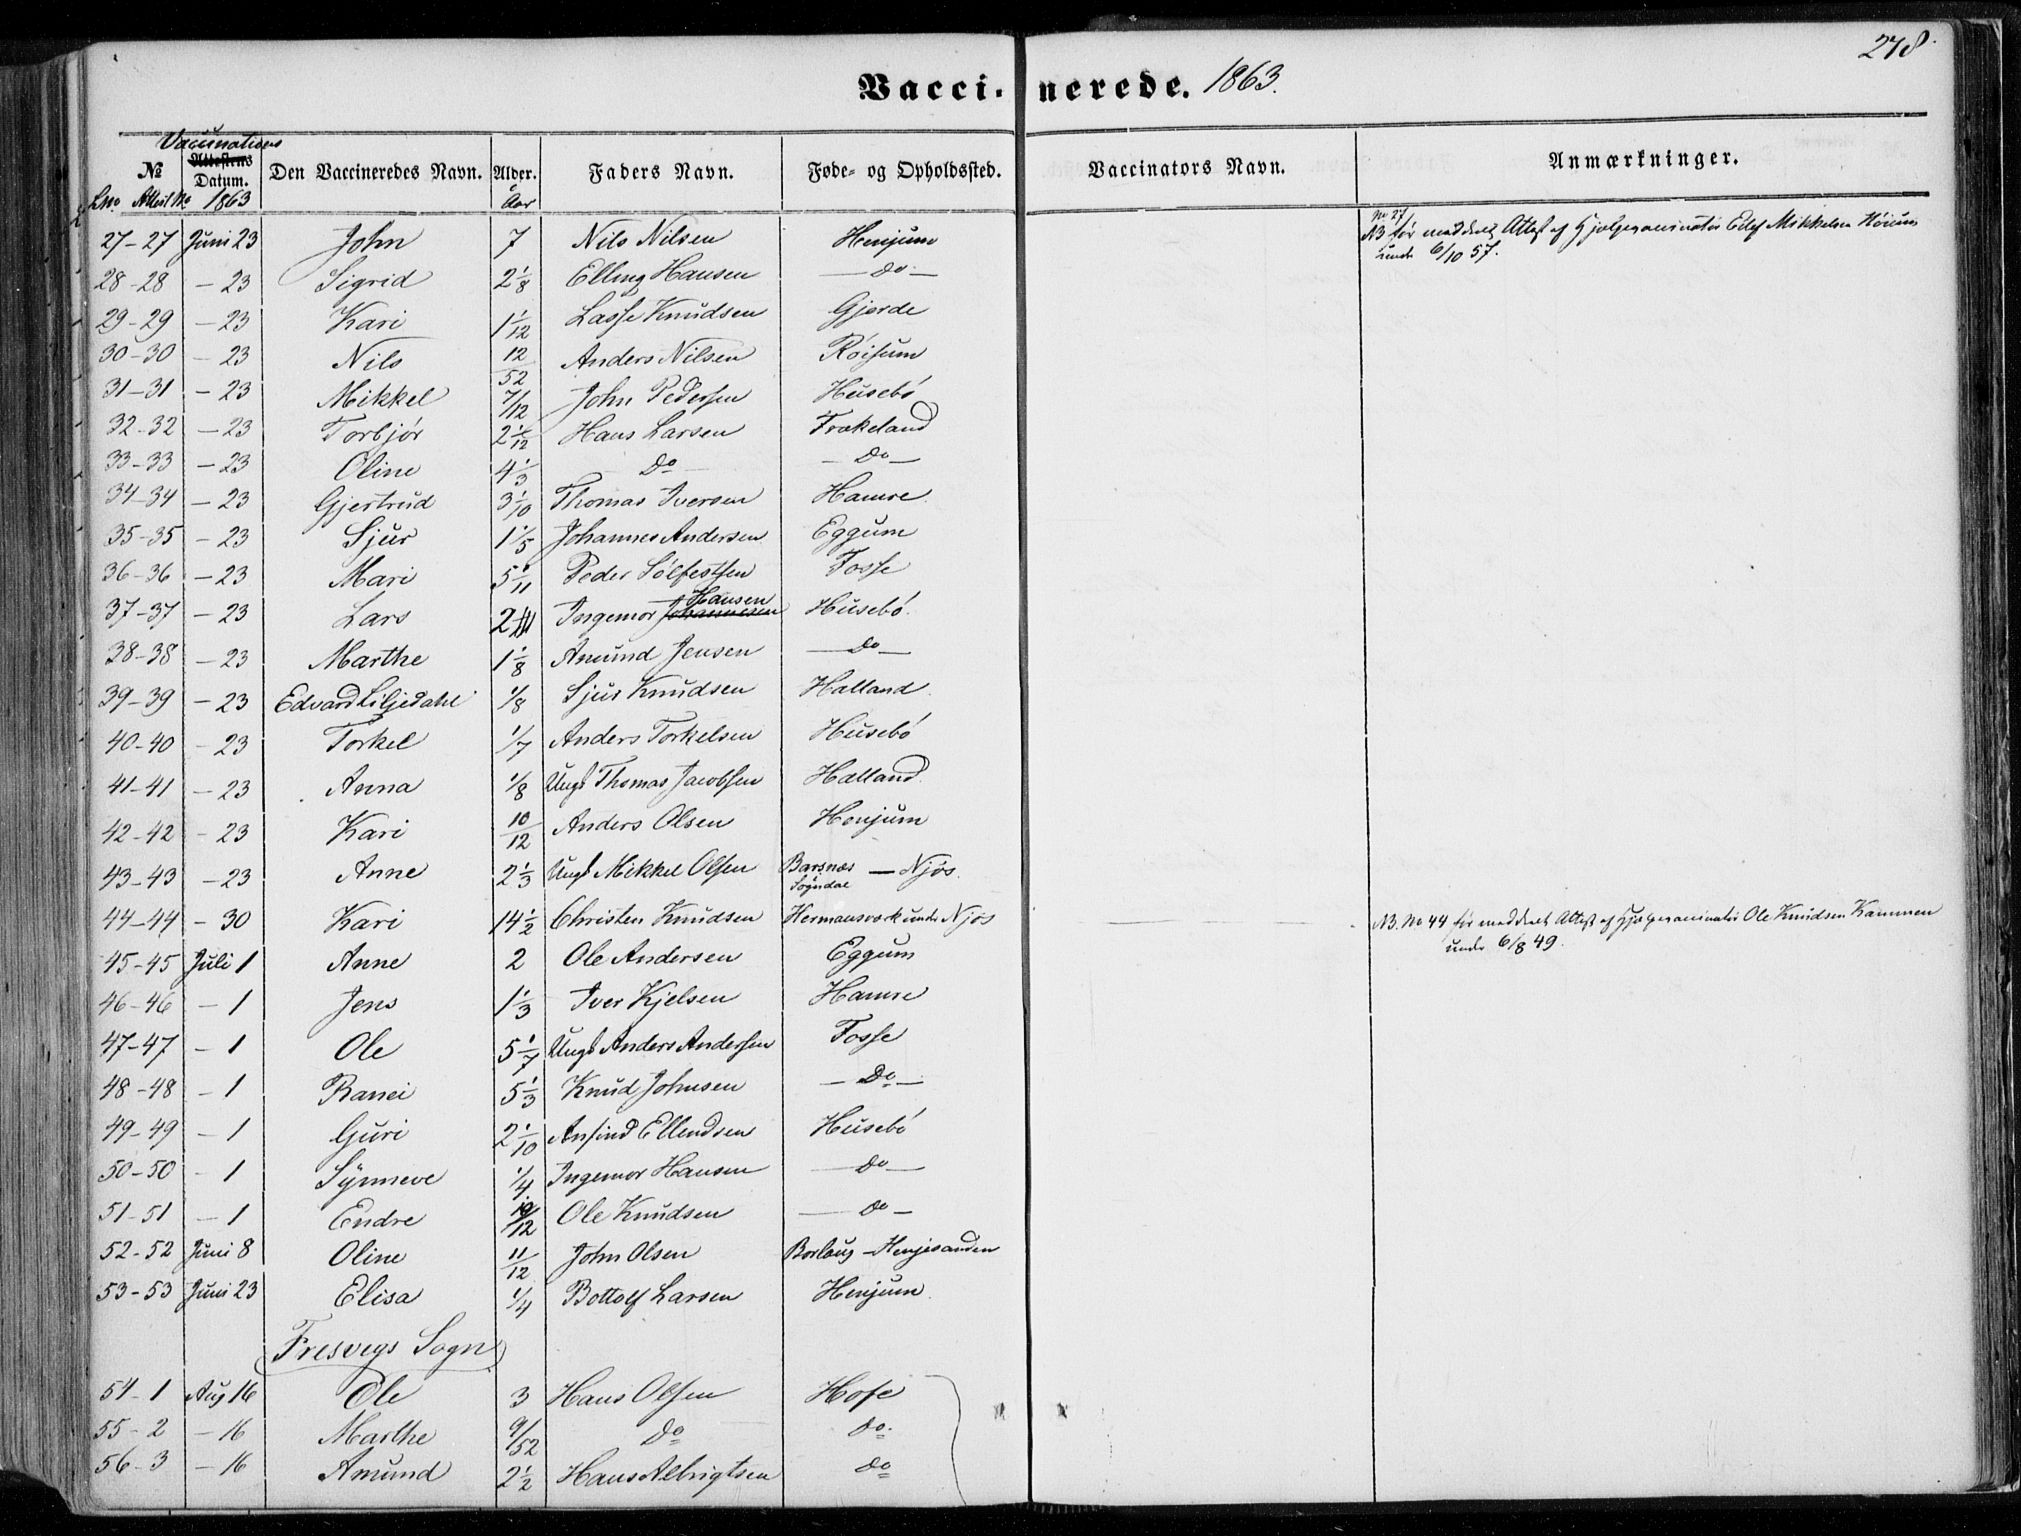 278
Vacci-nerede. 1863.
Vaccinations
№ Attestens Datum. Den Vaccineredes Navn. Alder. Faders Navn. Føde- og Opholdssted. Vaccinators Navn. Anmærkninger.
Lno. Attest No 1863 Aar
27-27 Juni 23 John 7 Nils Nilsen Henjum No 27 NB før meddelt Attest af Hjelpevaccinatør Mikkelsen
under 6/10 57.
28-28 - 23 Sigrid 2 1/8 Elling Hansen - do -
29-29 - 23 Kari 1 1/12 Lasse Knudsen Gjerde
30-30 - 23 Nils 12/52 Anders Nilsen Röisum
31-31 - 23 Mikkel 7/12 John Pedersen Husebö
32-32 - 23 Torbjör 2 1/12 Hans Larsen Frøkeland
33-33 - 23 Oline 4 1/3 Do - Do -
34-34 - 23 Gjertrud 3 1/10 Thomas Iversen Hamre
35-35 - 23 Sjur 1 1/5 Johannes Andersen Eggum
36-36 - 23 Mari 5 1/11 Peder Sölfestsen Fosse
37-37 - 23 Lars 2 Ingemor Johannesen Hansen Husebö
38-38 - 23 Marthe 1 1/8 Amund Jensen - Do -
39-39 - 23 Edvard Liljedahl 1/8 Sjur Knudsen Halland
40-40 - 23 Torkel 1/7 Anders Torkelsen Husebö
41-41 - 23 Anna 1/8 Ungk Thomas Jacobsen Halland
42-42 - 23 Kari 10/12 Anders Olsen Henjum
43-43 - 23 Anne 2 1/3 Ungk Mikkel Olsen Barsnæs Sogndal - Njøs
44-44 - 30 Kari 14 1/2 Christen Knudsen Hermansverk under Njøs NB. No 44 før meddelt Attest af Hjelpevaccinatør Ole Knudsen
under 6/8 49.
45-45 Juli 1 Anne 2 Ole Andersen Eggum
46-46 - 1 Jens 1 1/3 Iver Kjelsen Hamre
47-47 - 1 Ole 5 1/7 Ungk Anders Andersen Fosse
48-48 - 1 Ranei 5 1/3 Knud Johnsen - Do -
49-49 - 1 Guri 2 1/10 Anfind Ellendsen Husebö
50-50 - 1 Synneve 1/4 Ingemor Hansen - Do -
51-51 - 1 Endre 10/12 Ole Knudsen - do -
52-52 Juni 8 Oline 11/12 John Olsen Borlaug - Henjesanden
53-53 Juni 23 Elisa 1/4 Bottolf Larsen Henjum
Fresvegs Sogn
54-1 Aug 16 Ole 3 Hans Olsen Hofe
55-2 - 16 Marthe 9/52 Do do.
56-3 - 16 Amund 2 1/2 Hans Albrigtsen do